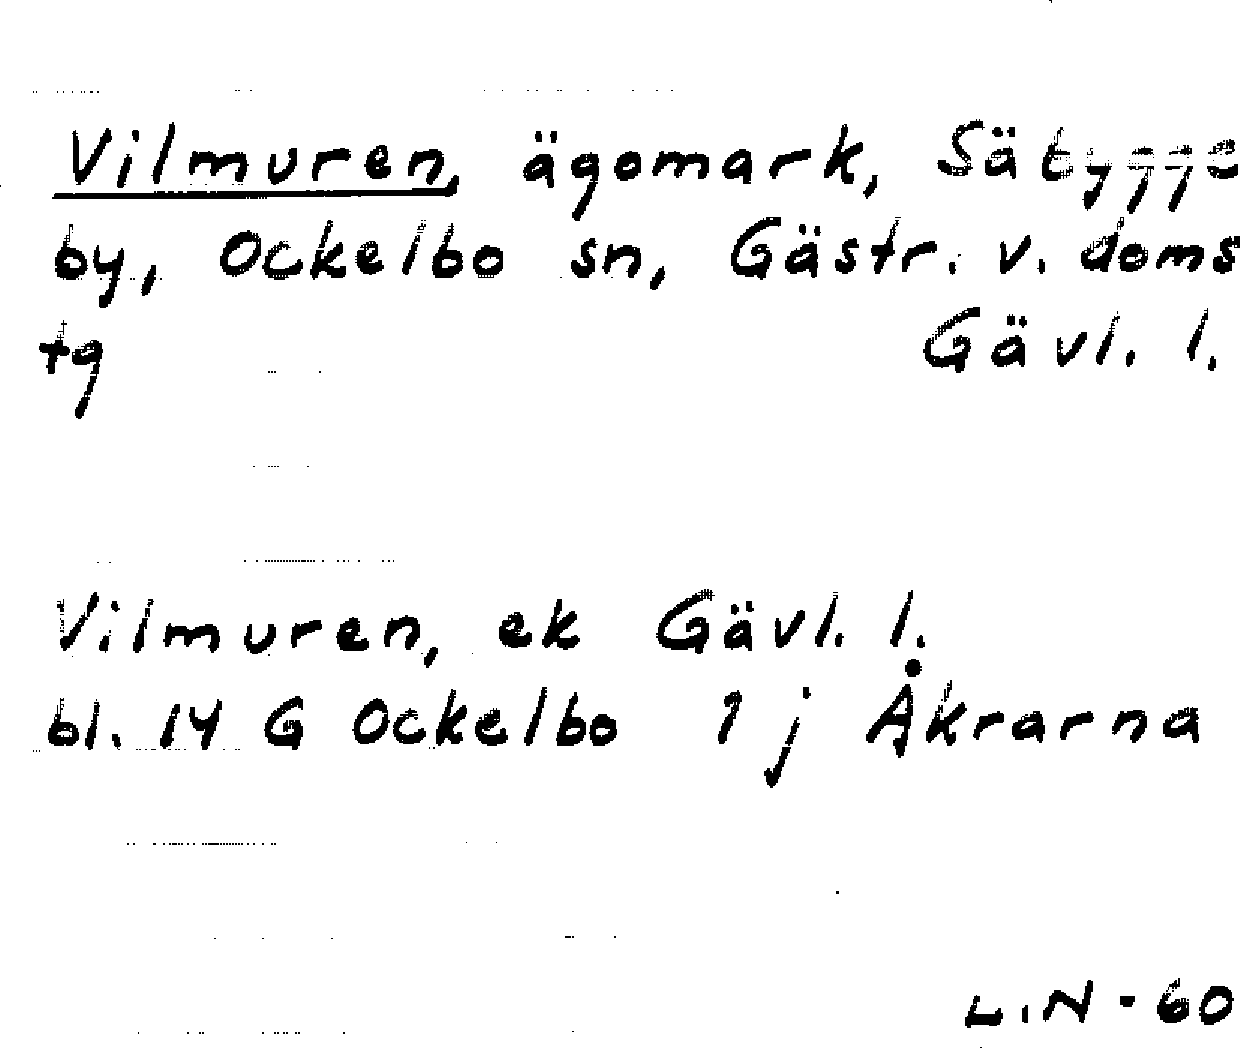 Vilmuren, ägomark, Sätygge
by, Ockelbo sn, Gästr. v. doms
tg Gävl. l.
Vilmuren, ek Gävl. l.
bl. 14 G Ockelbo 1 j Åkrarna
L.N - 60